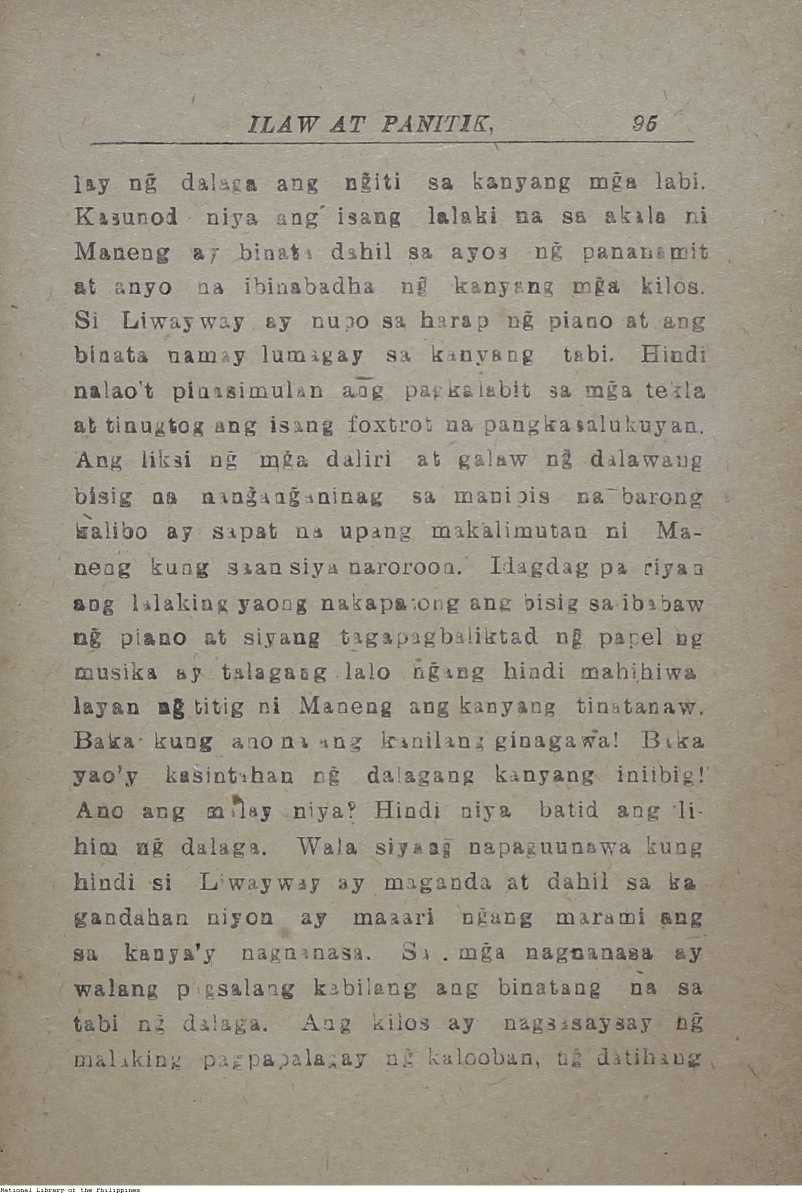 ILAW AT PANITIK, 95
lay ng̃ dalaga ang ng̃iti sa kanyang mg̃a labi.
Kasunod niya ang isang lalaki na sa akala ni
Maneng ay binata dahil sa ayos ng̃ pananamit
at anyo na ibinabadha ng̃ kanyang mg̃a kilos.
Si Liwayway ay nupo sa harap ng̃ piano at ang
binata namay lumagay sa kanyang tabi. Hindi
nalao't pinasimulan ang pagkalabit sa mg̃a tekla
at tinugtog ang isang foxtrot na pangkasalukuyan.
Ang liksi ng̃ mg̃a daliri at galaw ng̃ dalawang
bisig na nang̃ang̃aninag sa manipis na barong
kalibo ay sapat na upang makalimutan ni Ma-
neng kung saan siya naroroon. Idagdag pa riyan
ang lalaking yaong nakapatong ang bisig sa ibabaw
ng̃ piano at siyang tagapagbaliktad ng̃ papel ng
musika ay talagang lalo ng̃ang hindi mahihiwa
layan ng̃ titig ni Maneng ang kanyang tinatanaw.
Baka kung ano na ang kanilang ginagawa! Baka
yao'y kasintahan ng̃ dalagang kanyang iniibig!
Ano ang malay niya? Hindi niya batid ang li-
him ng̃ dalaga. Wala siyang̃ napaguunawa kung
hindi si Liwayway ay maganda at dahil sa ka
gandahan niyon ay maaari ng̃ang marami ang
sa kanya'y nagnanasa. Sa mg̃a nagnanasa ay
walang pagsalang kabilang ang binatang na sa
tabi ng̃ dalaga. Ang kilos ay nagsasaysay ng̃
malaking pagpapalagay ng̃ kalooban, ng̃ datihang
National Library of the Philippines